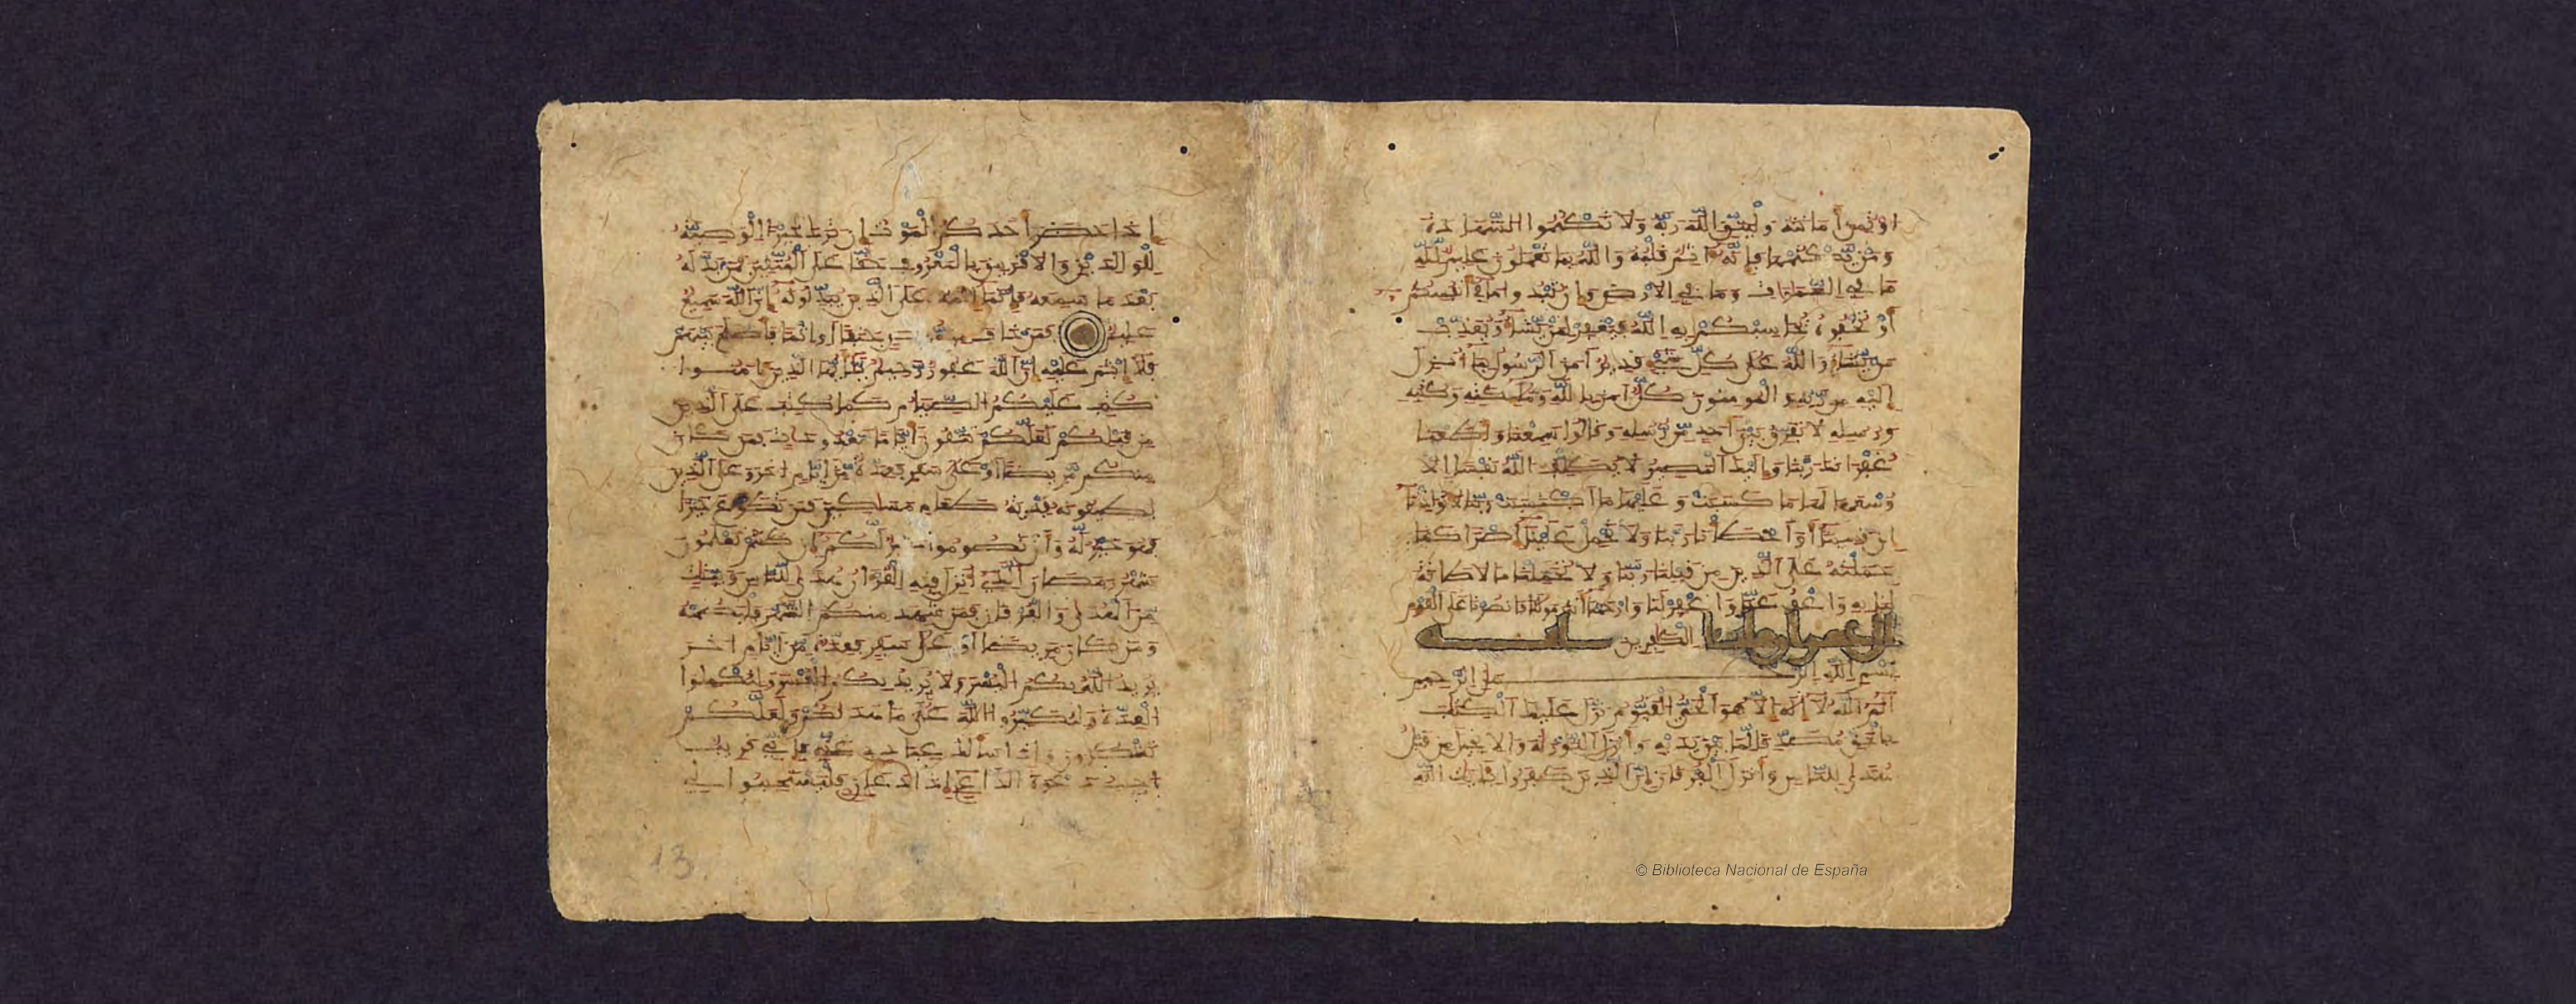 اوتمن امانته وليتق الله ربه ولا تكتموا الشهادة
ومن يكتمها فإنه آثم قلبه والله بما تعملون عليم لله
ما في السموات وما في الارض وان تبدوا ما في انفسكم
أو تخفوه يحاسبكم به الله فيغفر لمن يشاء ويعذب
من يشاء والله على كل شيء قدير آمن الرسول بما أنزل
إليه من ربه والمومنون كل آمن بالله وملئكته وكتبه
ورسله لا نفرق بين أحد من رسله وقالوا سمعنا وأطعنا
غفرانك ربنا وإليك المصير لا يكلف الله نفسا إلا
وسعها لها ما كسبت وعليها ما اكتسبت ربنا لا تواخذنا
إن نسينا أو أخطأنا ربنا ولا تحمل علينا إصرا كما
حملته على الذين من قبلنا ربنا ولا تحملنا ما لا طاقة
لنا به واعف عنا واغفر لنا وارحمنا أنت مولينا فانصرنا على القوم
ال عمران الكفرين
بسم الله الرحمن الرحيم
الم الله لا إله إلا هو الحي القيوم نزل عليك الكتب
بالحق مصدقا لما بين يديه وأنزل التورية والانجيل من قبل
هدى للناس وأنزل الفرقان إن الذين كفروا بآيت الله
إذا حضر أحدكم الموت إن ترك خيرا الوصية
للولدين والاقربين بالمعروف حقا على المتقين فمن بدله
بعد ما سمعه فإنما إثمه على الذين يبدلونه إن الله سميع
عليم فمن خاف من موص جنفا أو إثما فأصلح بينهم
فلا إثم عليه إن الله غفور رحيم يأيها الذين آمنوا
كتب عليكم الصيام كما كتب على الذين
من قبلكم لعلكم تتقون أياما معدودات فمن كان
منكم مريضا أو على سفر فعدة من أيام أخر وعلى الذين
يطيقونه فدية طعام مسكين فمن تطوع خيرا
فهو خير له وأن تصوموا خير لكم إن كنتم تعلمون
شهر رمضان الذي أنزل فيه القرآن هدى للناس وبينت
من الهدى والفرقان فمن شهد منكم الشهر فليصمه
ومن كان مريضا أو على سفر فعدة من أيام أخر
يريد الله بكم اليسر ولا يريد بكم العسر ولتكملوا
العدة ولتكبروا الله على ما هديكم ولعلكم
تشكرون وإذا سألك عبادي عني فإني قريب
أجيب دعوة الداع إذا دعان فليستجيبوا لي
13.
© Biblioteca Nacional de España